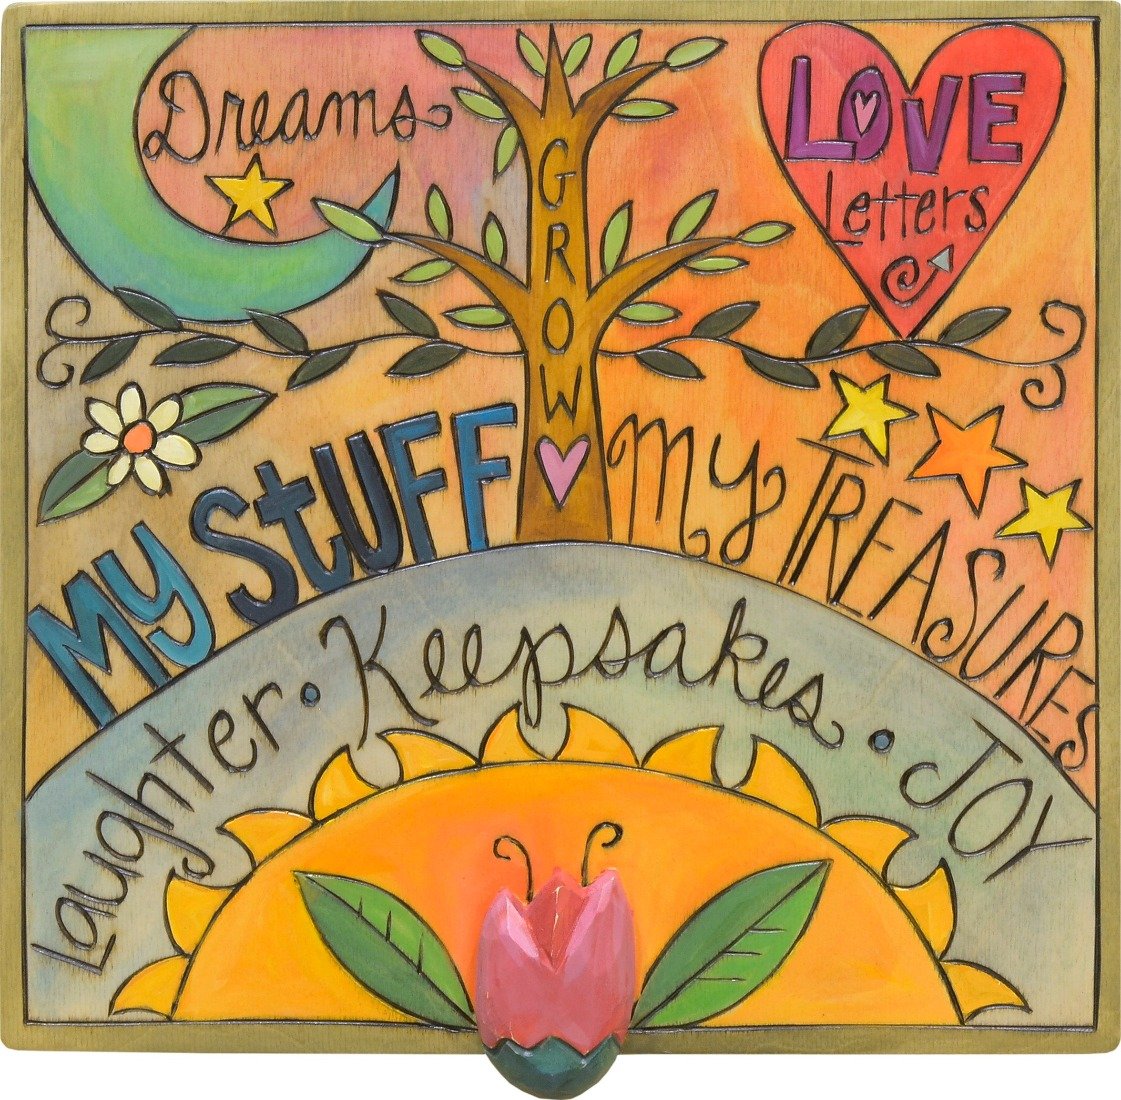 Dreams
GROW
LOVE
Letters
My STUFF
My TREASURES
Laughter · Keepsakes · JOY